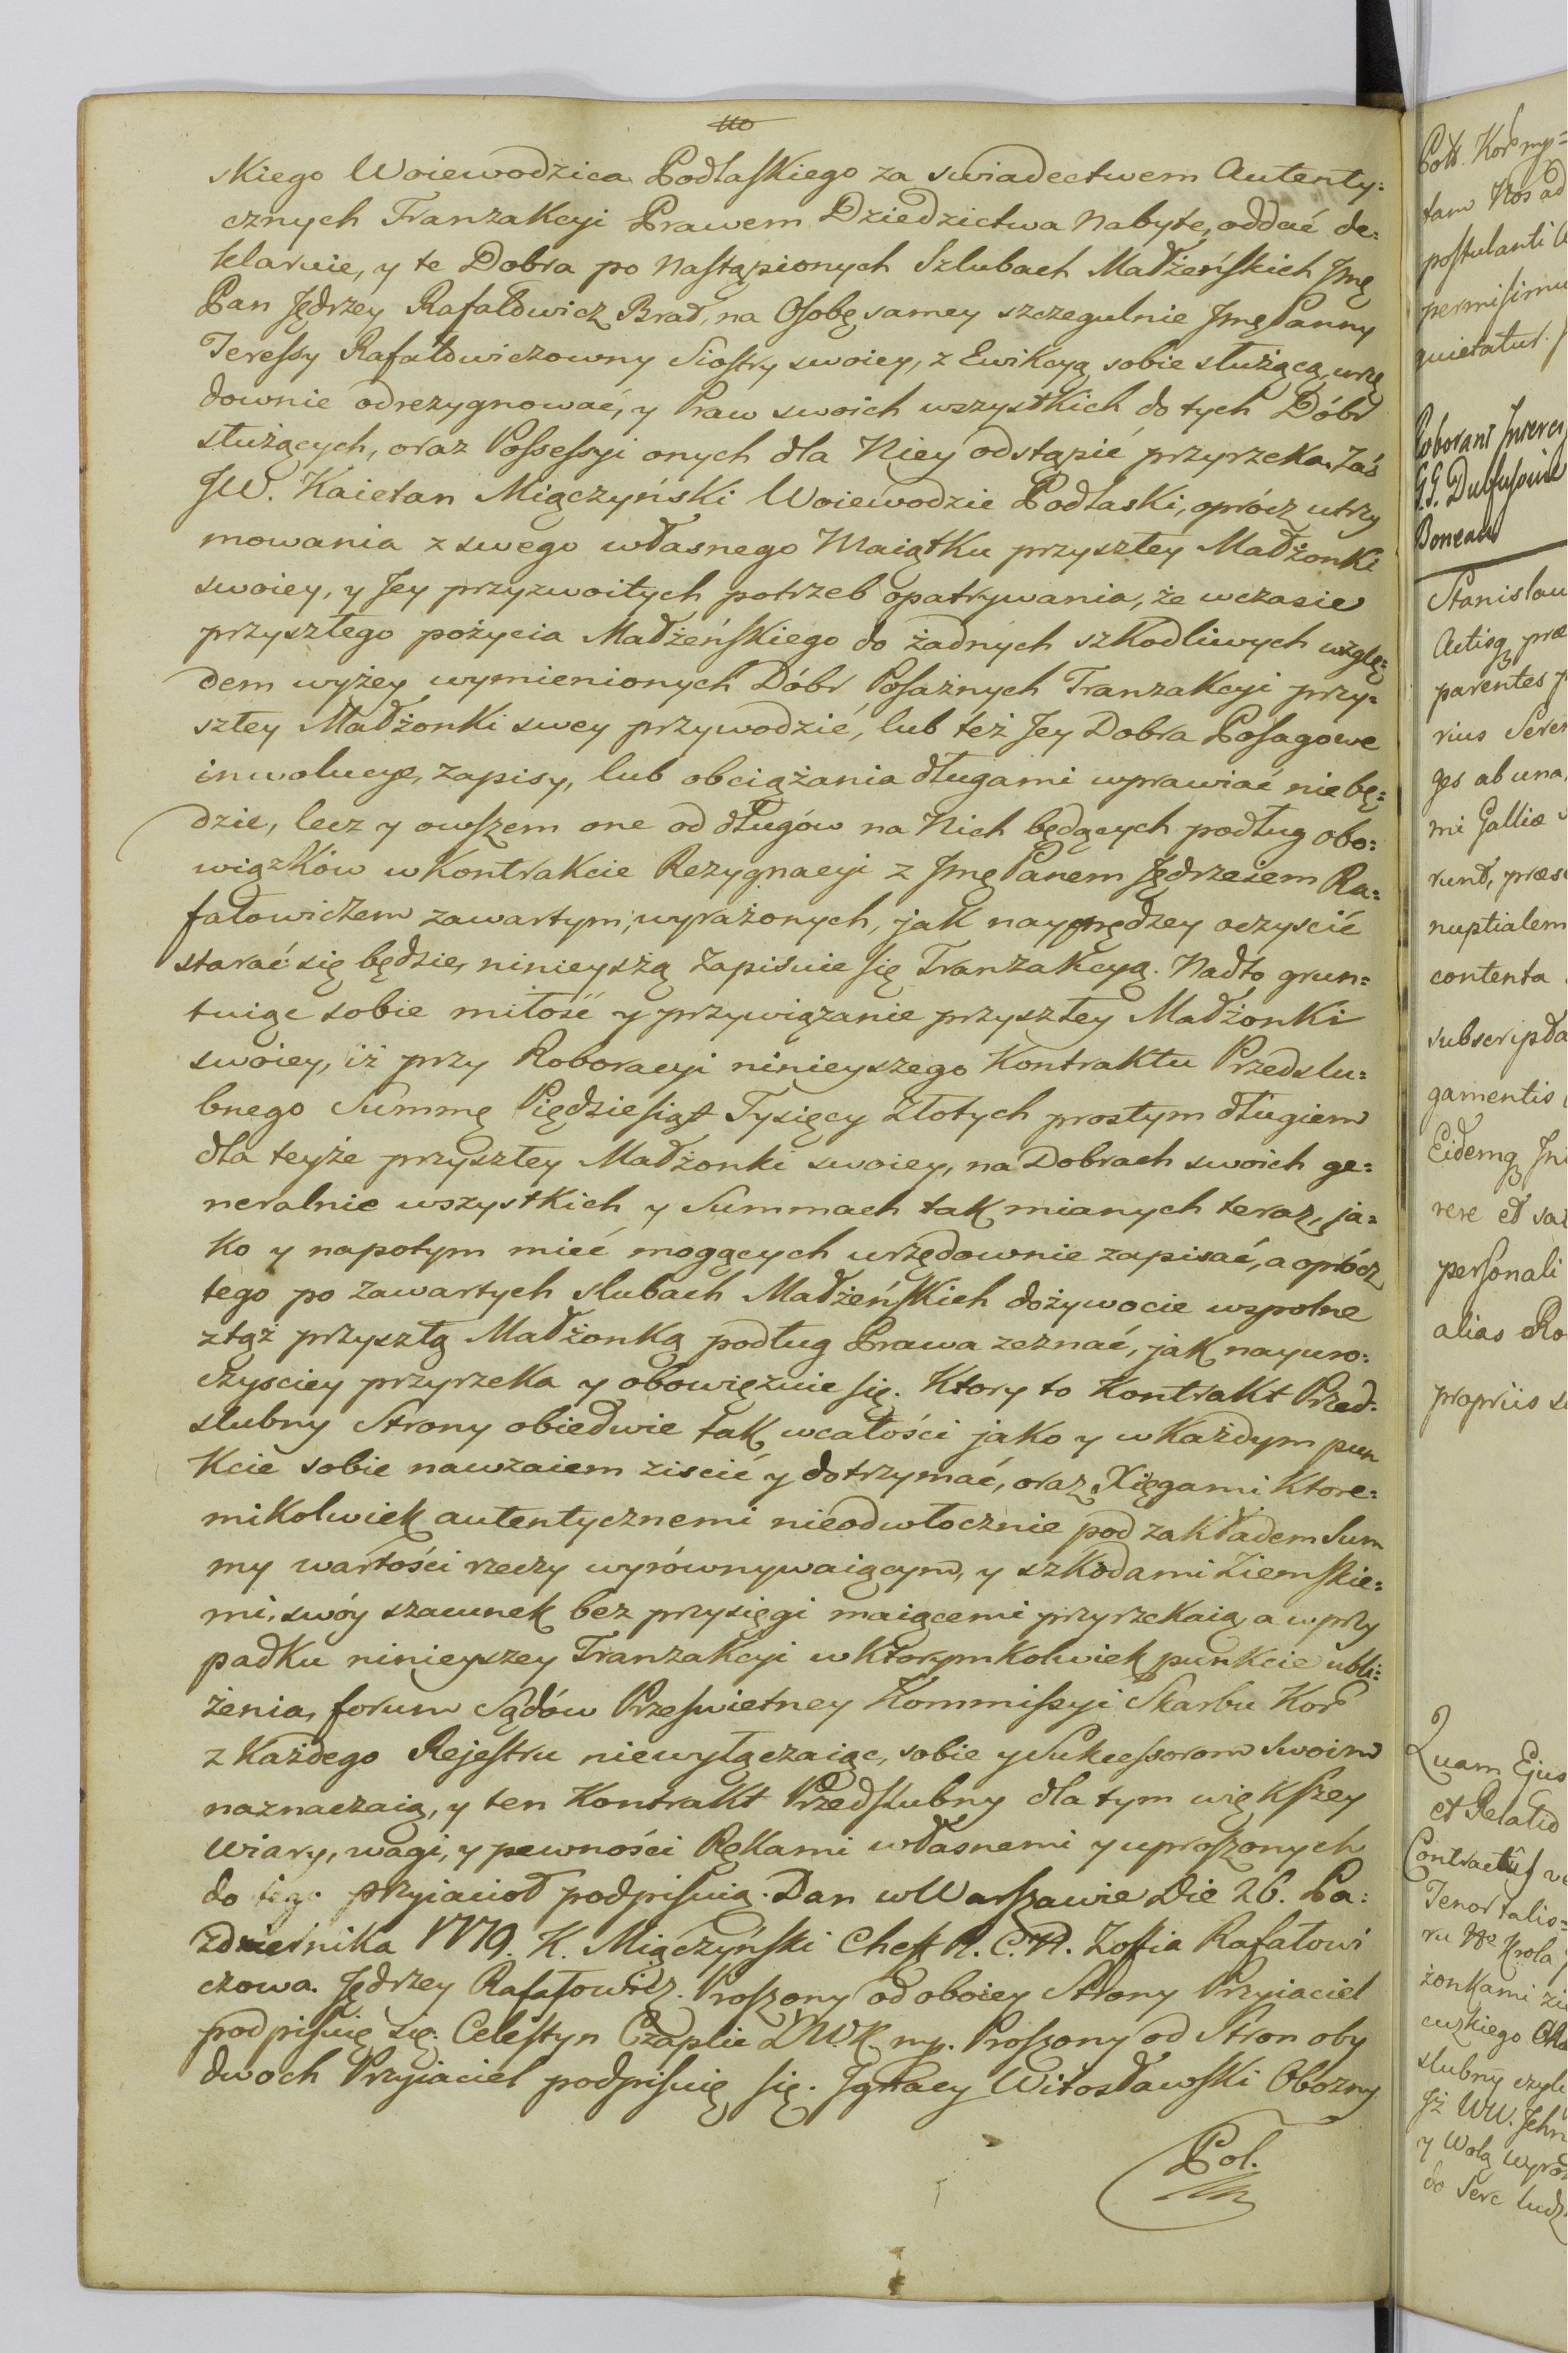 skiego Woiewodzica Podlaskiego za swiadectwem Autenty=
cznych Tranzakcyi Prawem Dziedzictwa Nabyte, oddać de=
klaruie, y te Dobra po nastąpionych Szlubach Małżeńskich Jmę
Pan Jędrzey Rafałowicz Brat, na Osobę samey szczegulnie Jmę Panny
Teressy Rafałowiczowny Siostry swoiey, z Ewikcyą sobie służącą, urzę
downie odrezygnować, y Praw swoich wszystkich do tych Dóbr
służących, oraz Possessyi onych dla Niey odstąpić przyrzeka. Zaś
JW. Kaietan Miączyński Woiewodzic Podlaski, oprócz utrzy
mowania z swego własnego Maiątku przyszłey Małżonki
swoiey, y Jey przyzwoitych potrzeb opatrywania, że wczasie
przyszłego pożycia Małżeńskiego do żadnych szkodliwych wzglę=
dem wyżey wymienionych Dóbr Posażnych Tranzakcyi przy=
szłey Małżonki swey przywodzić, lub też Jey Dobra Posagowe
inwolucye, zapisy, lub obciążania długami wprawiać nie bę=
dzie, lecz y owszem one od długów na Nich będących podług obo=
wiązków w Kontrakcie Rezygnacyi z Jmę Panem Jędrzeiem Ra=
fałowiczem zawartym, wyrażonych, jak nayprędzey oczyścić
starać się będzie, ninieyszą zapisuie się Tranzakcyą. Nadto grun=
tuiąc sobie miłość y przywiązanie przyszłey Małżonki
swoiey, iż przy Roboracyi ninieyszego Kontraktu Przedslu=
bnego Summę Pięćdziesiąt Tysięcy Złotych prostym długiem
dla teyże przyszłey Małżonki swoiey, na Dobrach swoich ge=
neralnie wszystkich y Summach tak mianych teraz, ja=
ko y napotym mieć mogących urzędownie zapisać, a oprócz
tego po zawartych slubach Małżeńskich dożywocie wspolne
ztąż przyszłą Małżonką podług Prawa zeznać, jak nayuro=
czysciey przyrzeka y obowięzuie się. Ktory to Kontrakt Przed=
slubny Strony obiedwie tak wcałości jako y w każdym pun
kcie sobie nawzaiem ziscić y dotrzymać, oraz Xięgami ktore=
mikolwiek autentycznemi nieodwłocznie pod zakładem Sum
my wartości rzeczy wyrównywaiącym, y szkodami Ziemskie=
mi, swóy szacunek bez przysięgi maiącemi przyrzekaią, a w przy
padku ninieyszey Tranzakcyi w ktorymkolwiek punkcie ubli=
żenia, forum Sądów Prześwietney Kommissyi Skarbu Kor
z każdego Rejestru niewyłączaiąc, sobie y Sukcessorom swoim
naznaczaią, y ten Kontrakt Przedslubny dla tym większey
wiary, wagi, y pewności Rękami własnemi y uproszonych
do tego przyiacioł podpisuią. Dan w Warszawie Die 26. Pa=
zdziernika 1779. K. Miączyński Cheff R. C. K. Zofia Rafałowi
czowa. Jędrzey Rafałowicz. Proszony od oboiey Strony Przyiaciel
podpisuię się. Celestyn Czaplic Ł.W.K. mp. Proszony od Stron oby
dwoch Przyiaciel podpisuię się. Ignacy Witosławski Obozny
Pol.
Polt. Kor mp=
tam Nos ad
postulanti
permisimu
quietatur.
Roborant Inserc
G.G. Dulfusowie
Boneau
Stanislau
Actisq præ
parentes p
rius Seren
ges ab una
mi Galliæ
runt, præs
nuptialem
contenta
subscripta
gamentis
Eidemq Jn
rere et sat
personali
alias Ro
propriis
Quam Ejus
et Relatio
Contractus ve
Tenor talis=
ru Krola
żonkami
cuzkiego
slubny czyli
Jż WW. Jchm
y Wolą wypro
do Serc ludz